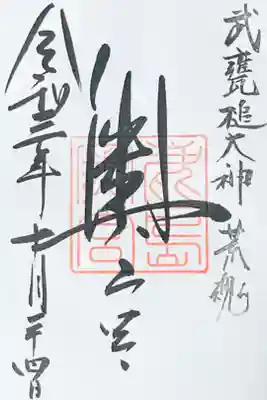 武甕槌大神 荒魂
奥宮
令和三年 月二十四日